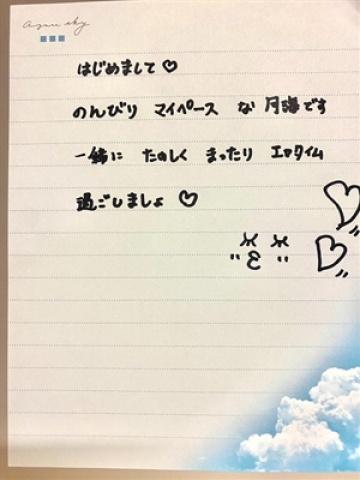 azure sky
はじめまして♡
のんびり マイペース な 月瑠です
一緒に たのしく まったり エロタイム
過ごしましょ ♡